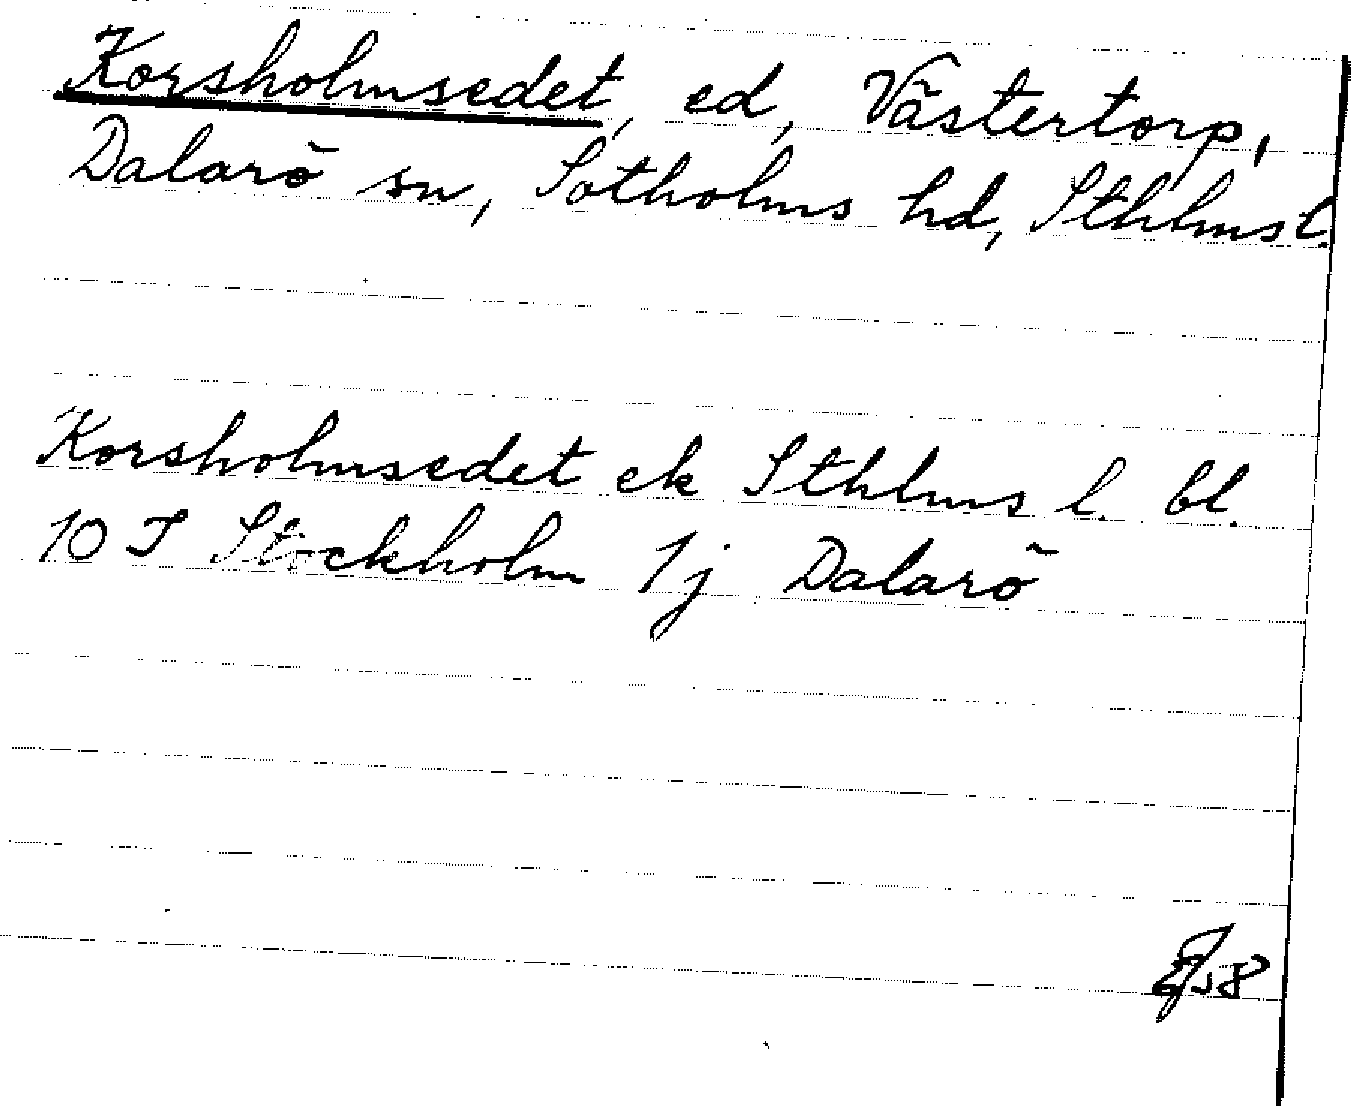 Korsholmsedet, ed, Västertorp,
Dalarö sn, Sotholms hd, Sthlms l.
Korsholmsedet ek Sthlms l. bl.
10 I Stockholm 1j Dalarö